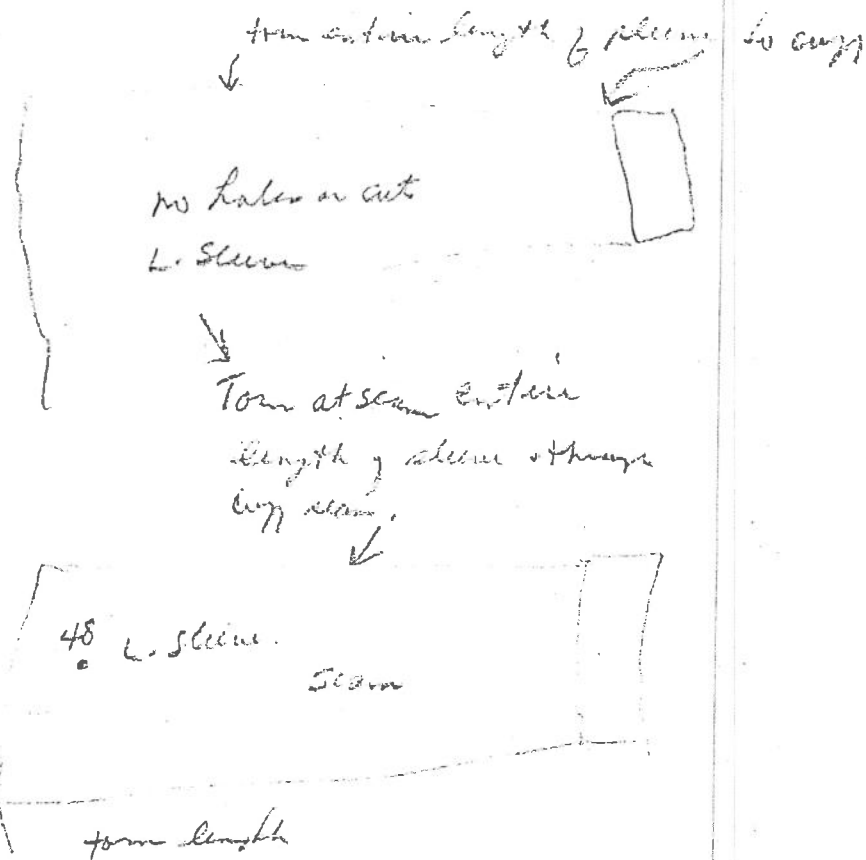 torn entire length of sleeve to cuff
no holes or cuts
L. Sleeve
Torn at seam entire
length of sleeve + through
cuff seam.
48 L. Sleeve.
seam
torn length